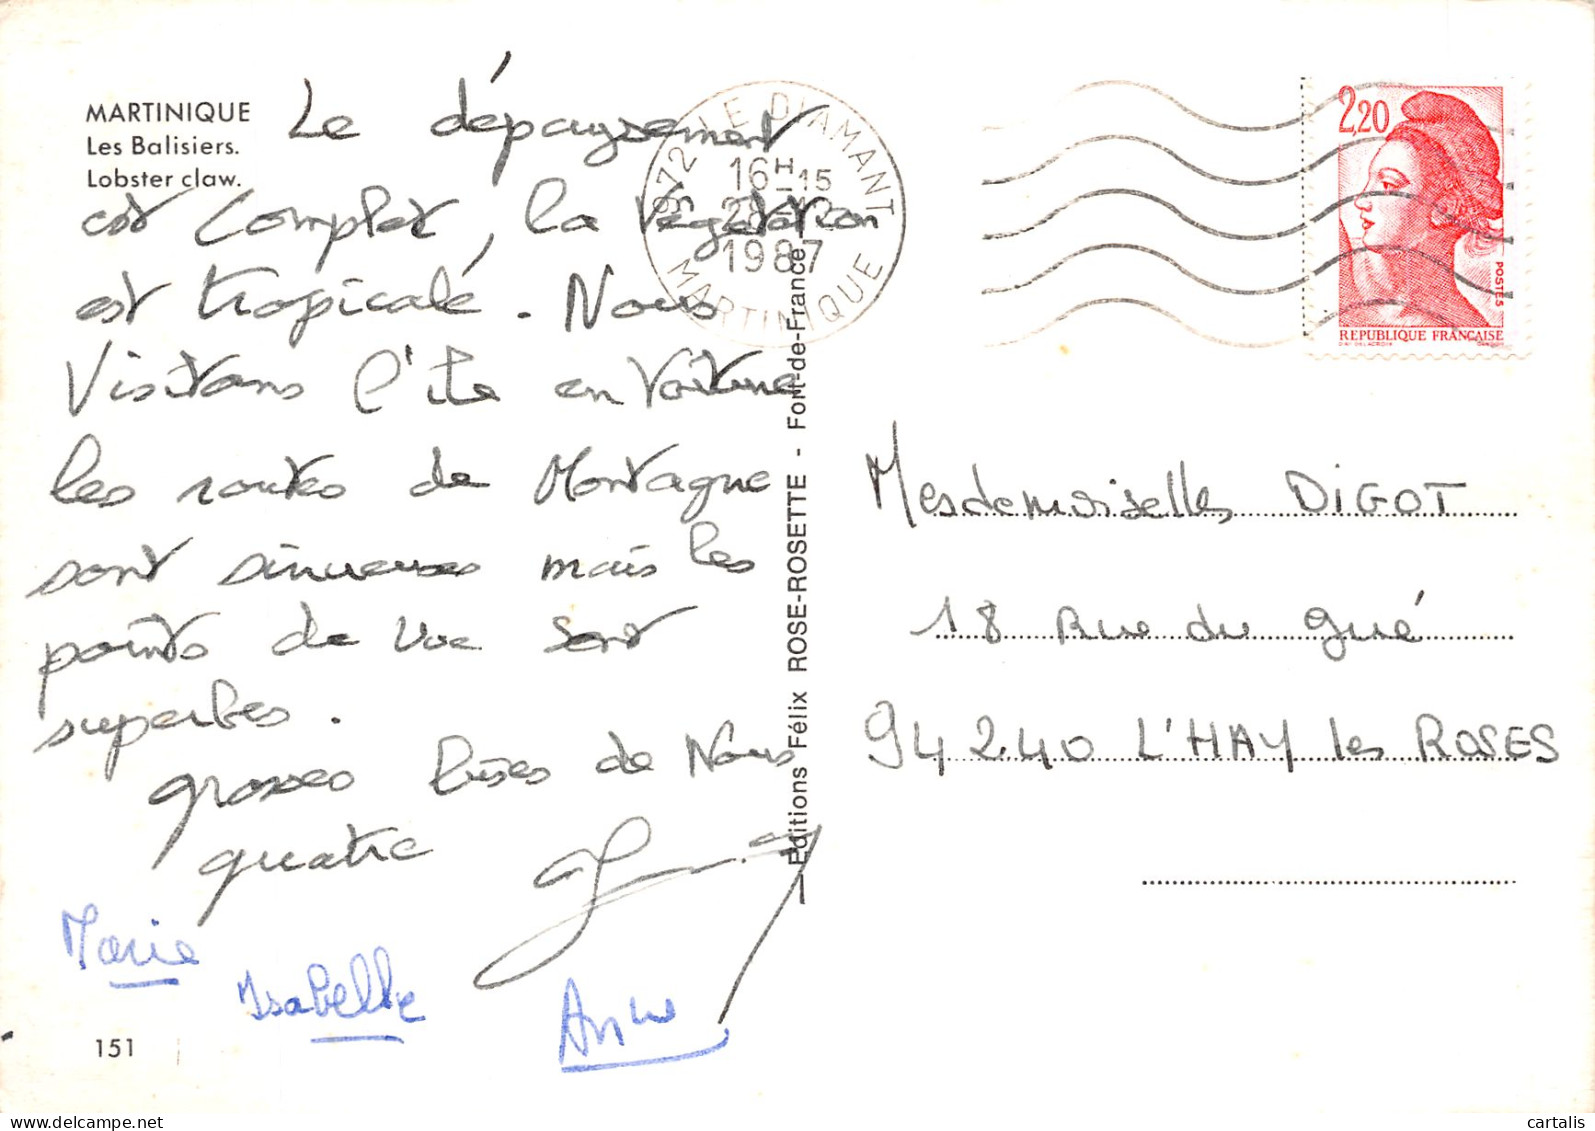 MARTINIQUE
Les Balisiers.
Lobster claw.
Le dépaysement
est complet, la végétation
est tropicale. Nous
Visitons l'île en voiture
les routes de Montagne
sont sinueuses mais les
points de vue sont
superbes.
grosses bises de Nous
quatre
Marie
Isabelle
151
972 LE DIAMANT
16H-15
1987
MARTINIQUE
Editions Félix ROSE-ROSETTE - Fort-de-France
2,20
POSTES
REPUBLIQUE FRANÇAISE
Mesdemoiselles DIGOT
18 Rue du Gué
94240 L'HAY les ROSES
cartalis